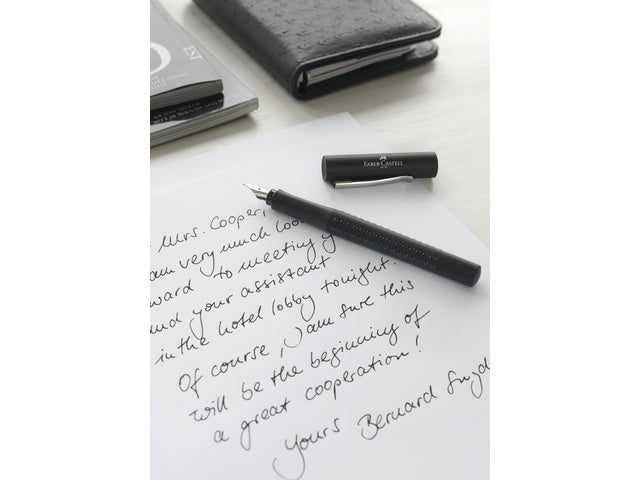 FABER-CASTELL
Mrs. Cooper,
am very much
ward to meeting
and your assistant
in the hotel lobby tonight.
Of course, I am sure this
will be the beginning of
a great cooperation!
Yours Bernard